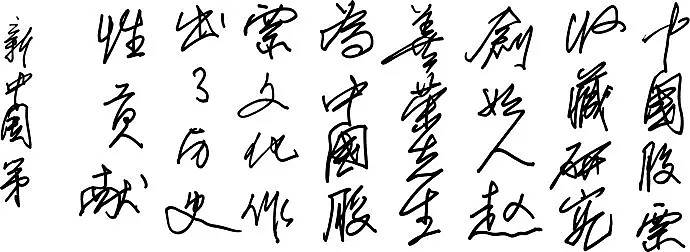 中國股票
收藏研究
創始人赵
善荣先生
為中國股
票文化作
出了历史
性贡献
新中国第